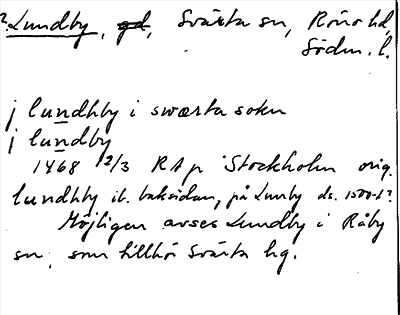 ? Lundby, gd, Svärta sn, Rönö hd,
Södm. l.
j lundhby i swærta sokn
j lundby
1468 12/3 RA p Stockholm orig.
lundhby ib. baksidan, på Lunby ds. 1500-t?
Möjligen avses Lundby i Råby
sn, som tillhör Svärta hg.